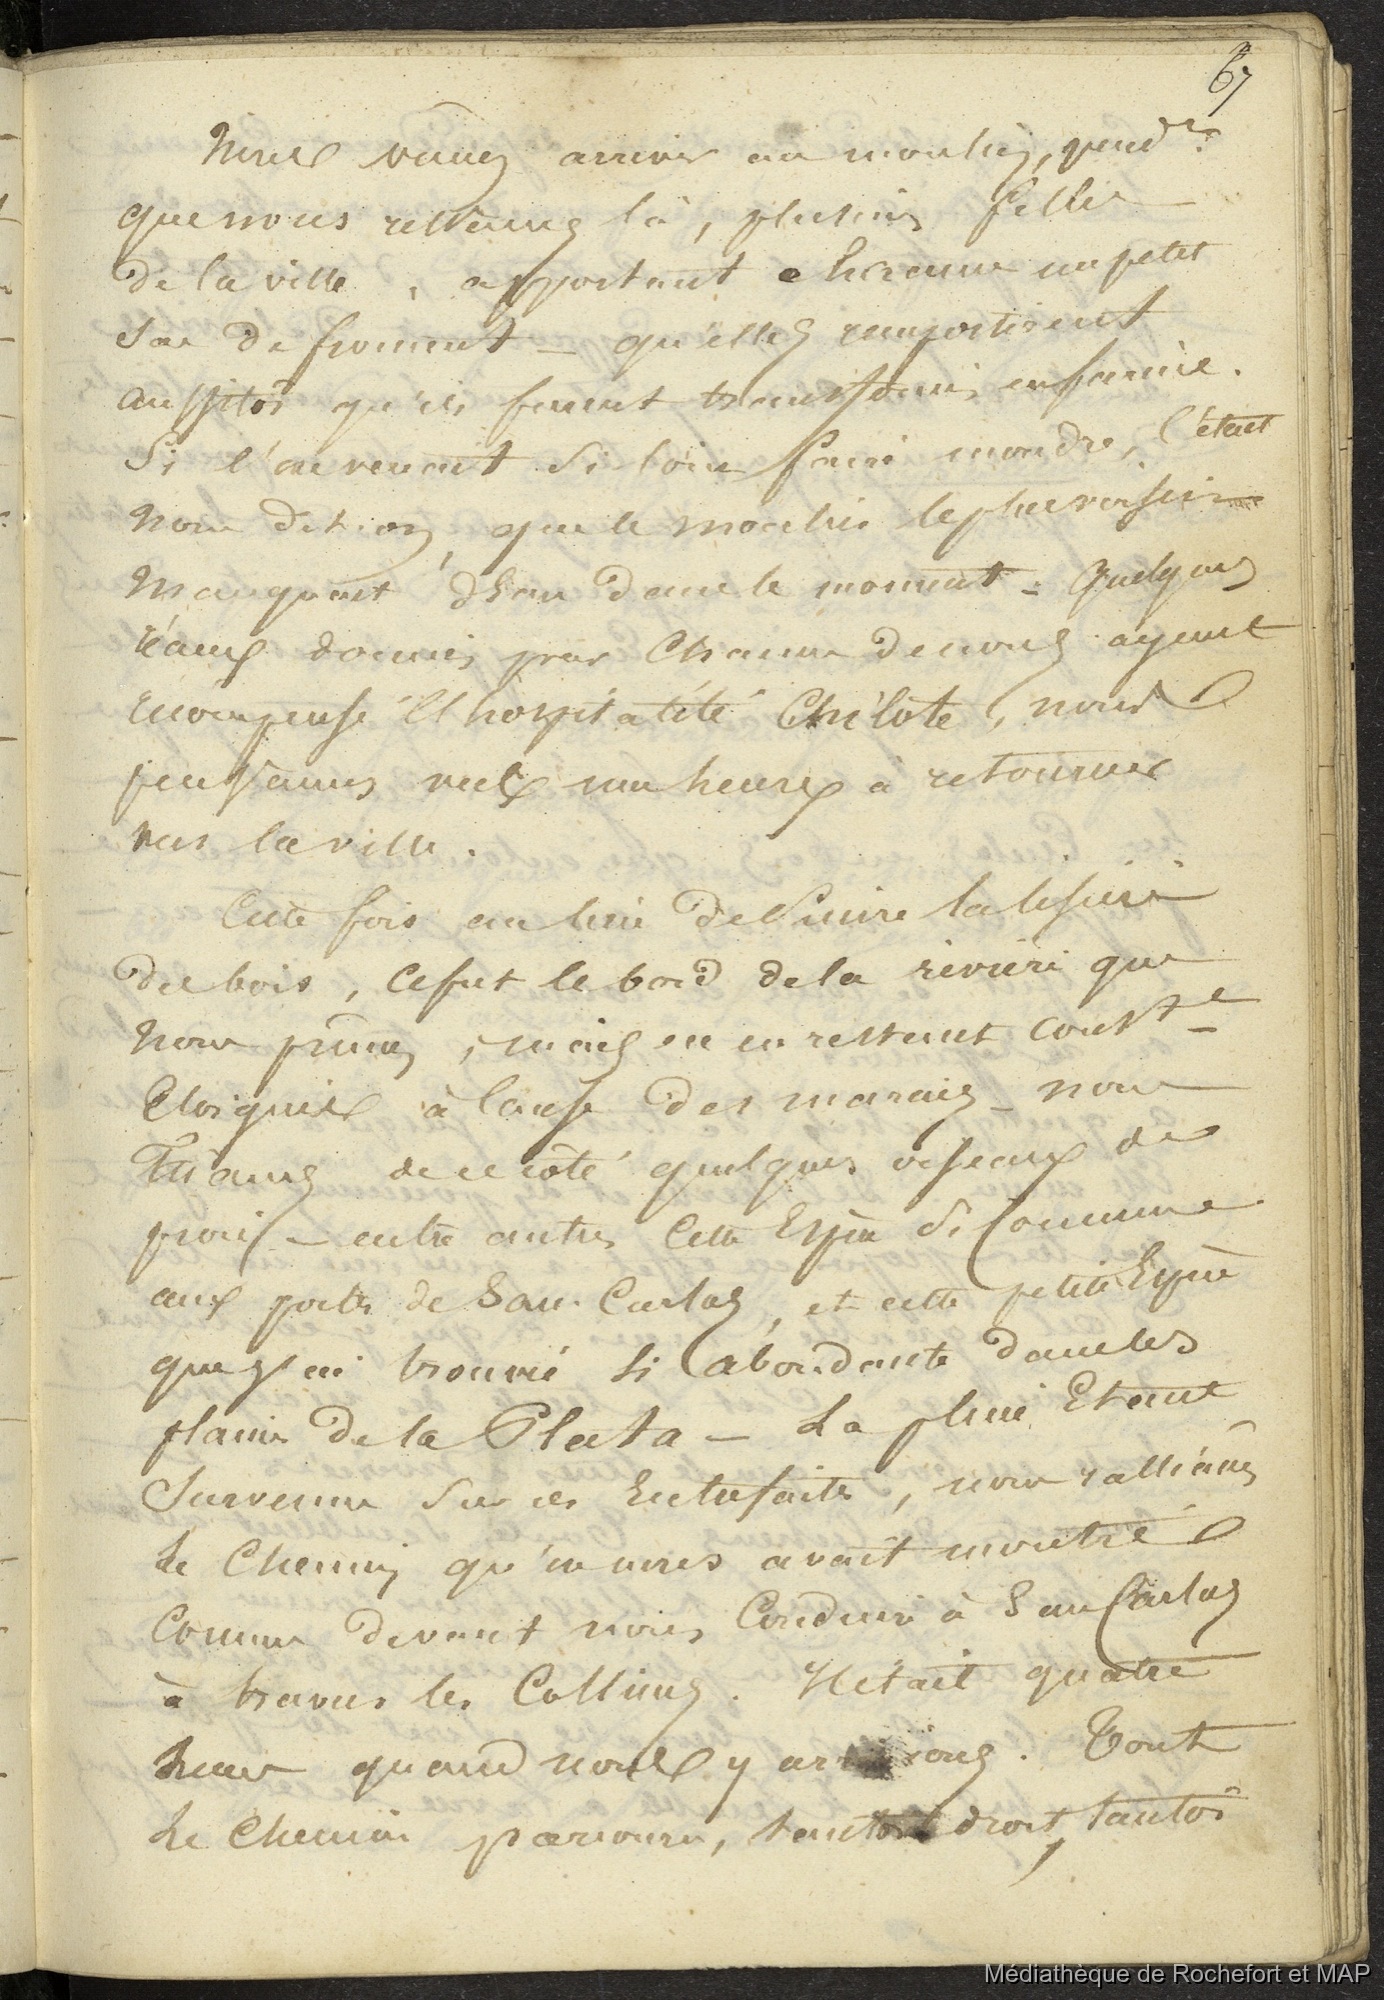 67
Nous vimes arriver au moulin, pend.t
que nous restames là, plusieurs filles
de la ville, apportant chacune un petit
sac de froment — qu'elles remportèrent
aussitôt qu'ils furent transformés en farine.
Si l'on venait si loin faire moudre, c'était
nous dit-on, que le moulin le plus voisin
manquait d'eau dans le moment - quelques
réaux donnés par chacun de nous ayant
récompensé l'hospitalité Chilote, nous
pensames vers une heure à retourner
vers la ville.
Cette fois au lieu de suivre la lisière
des bois, ce fut le bord de la rivière que
nous primes, mais en en restant const.t
éloignés à cause des marais - nous
tuames de ce côté quelques oiseaux de
proie - entre autres cette Espèce si commune
aux portes de San Carlos, et cette petite Espèce
que j'ai trouvée si abondante dans les
plaines de la Plata — La pluie Etant
survenue sur ces Entrefaites, nous ralliames
le chemin qu'on nous avait montré
comme devant nous conduire à San Carlos
à travers les Collines. Il était quatre
heures quand nous y arrivions. Tout
le chemin parcouru, tantôt droit, tantôt
Médiathèque de Rochefort et MAP